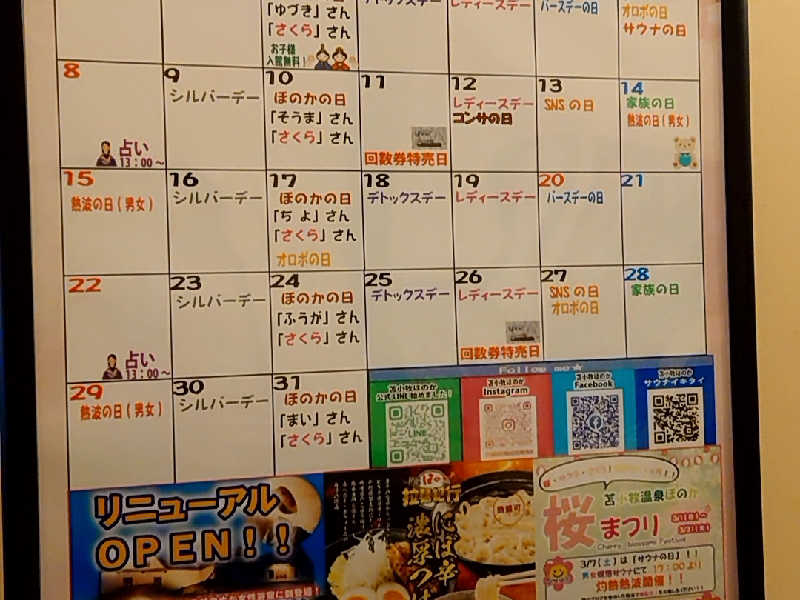 「ゆづき」さん
「さくら」さん
お子様
入館無料!
デトックスデー
レディースデー
バースデーの日
オロポの日
サウナの日
8
占い
13:00~
9
シルバーデー
10
ほのかの日
「そうま」さん
「さくら」さん
11
回数券特売日
12
レディースデー
コンサの日
13
SNSの日
14
家族の日
熱波の日(男女)
15
熱波の日(男女)
16
シルバーデー
17
ほのかの日
「ちよ」さん
「さくら」さん
オロポの日
18
デトックスデー
19
レディースデー
20
バースデーの日
21
22
占い
13:00~
23
シルバーデー
24
ほのかの日
「ふうが」さん
「さくら」さん
25
デトックスデー
26
レディースデー
回数券特売日
27
SNSの日
オロポの日
28
家族の日
29
熱波の日(男女)
30
シルバーデー
31
ほのかの日
「まい」さん
「さくら」さん
Follow me☆
苫小牧ほのか
公式LINE始めました!
LINE
苫小牧ほのか
Instagram
苫小牧ほのか
Facebook
苫小牧ほのか
サウナイキタイ
リニューアル
OPEN!!
濃厚つけ
苫小牧温泉ほのか
桜まつり
Cherry Blossoms Festival
3/7(土)は「サウナの日」!!
17:00より
灼熱熱波開催!!